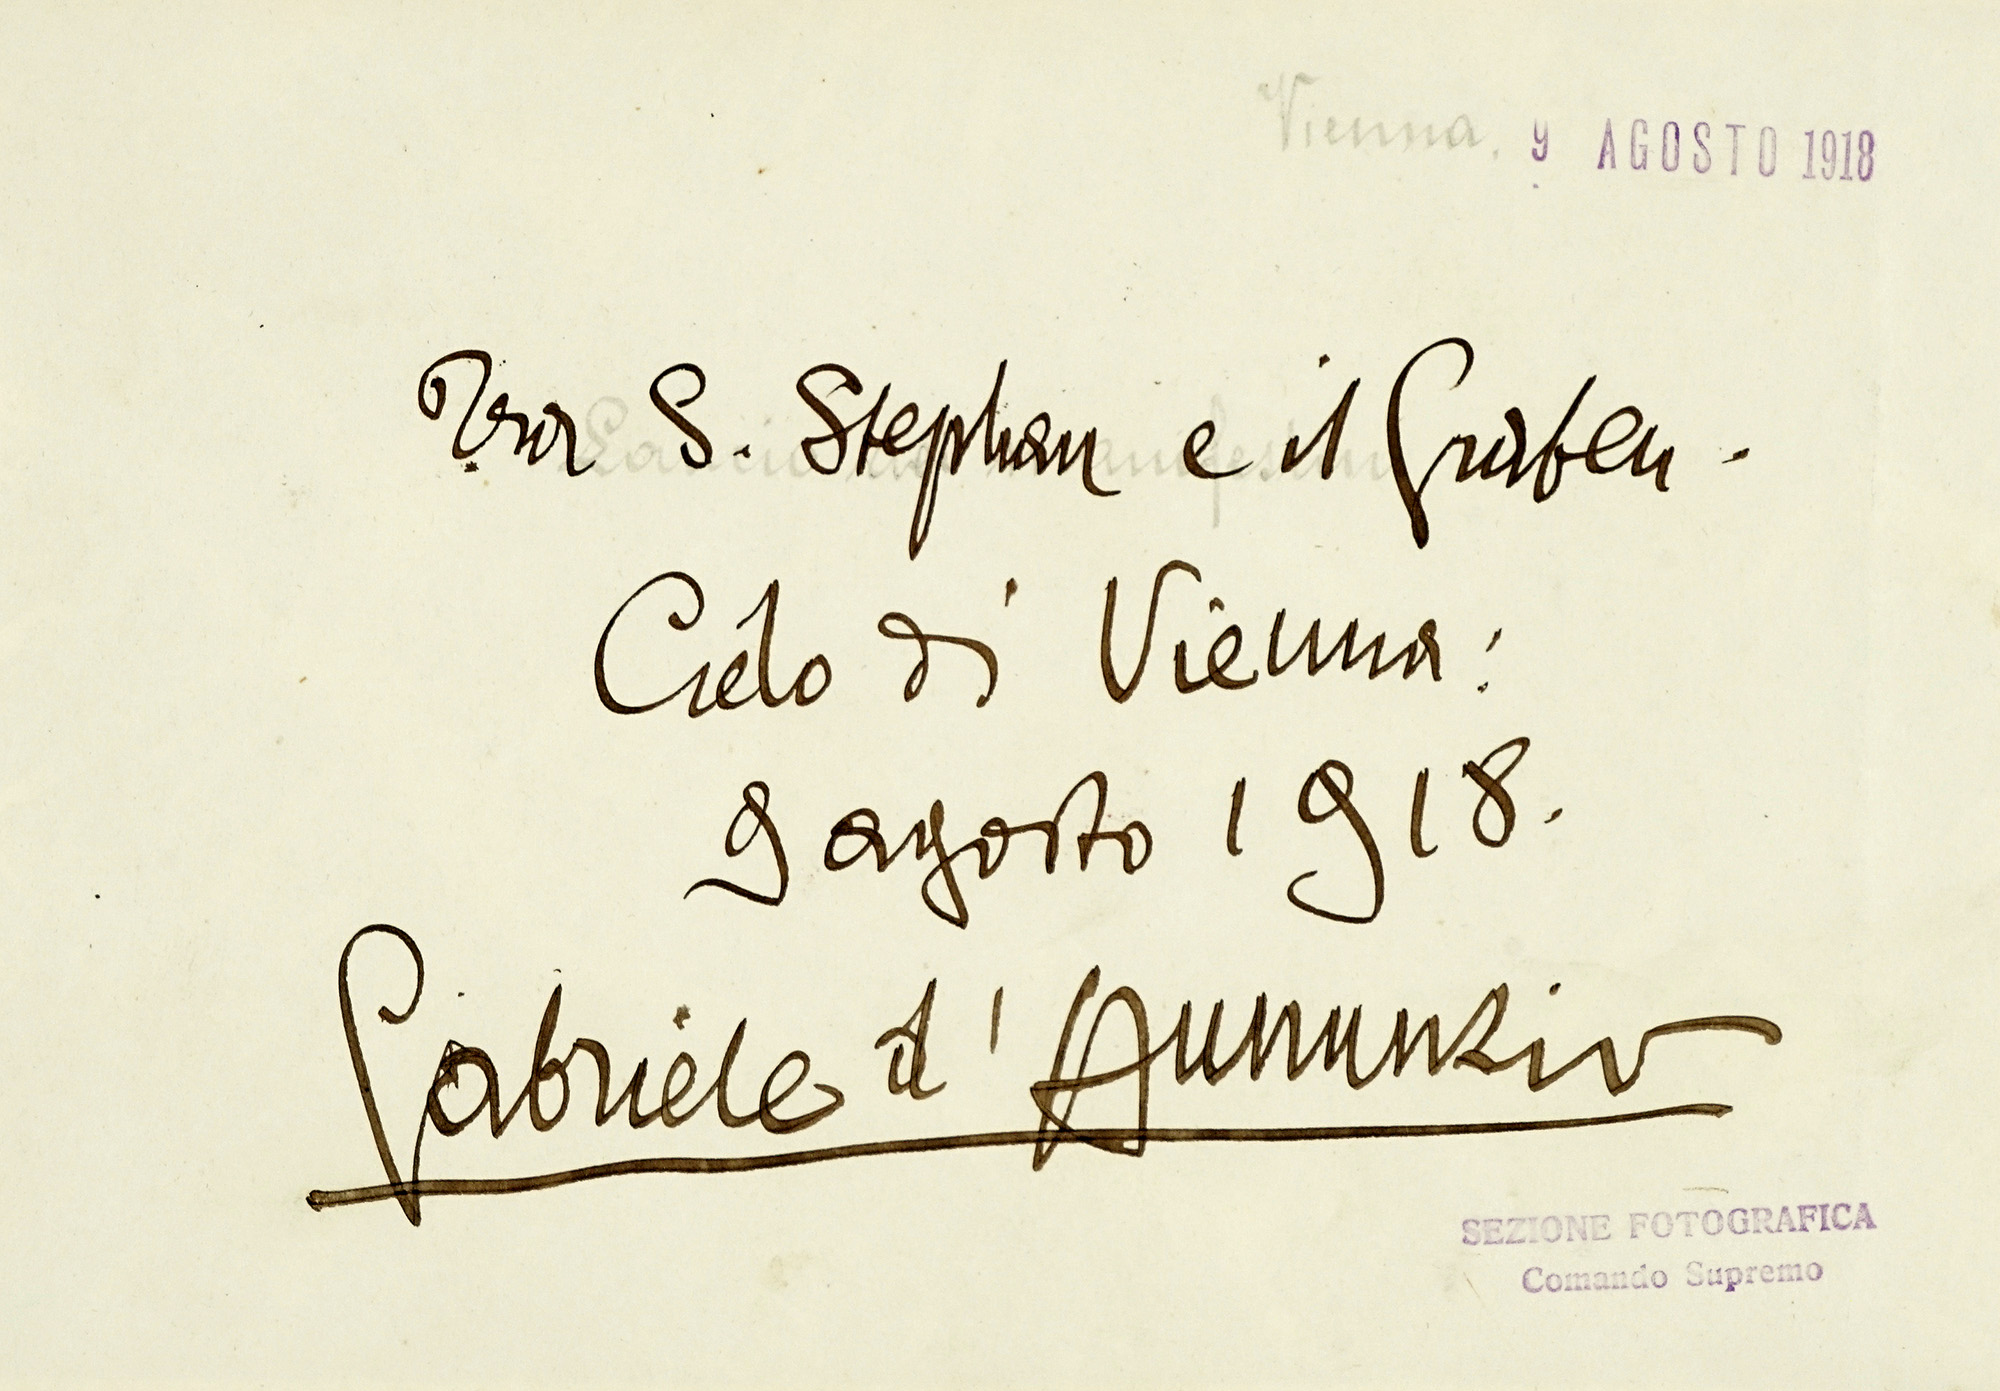 Vienna. 9 AGOSTO 1918
Tra S. Stephan e il Graben.
Lancio dei manifestini
Cielo di Vienna:
9 agosto 1918.
Gabriele d'Annunzio
SEZIONE FOTOGRAFICA
Comando Supremo